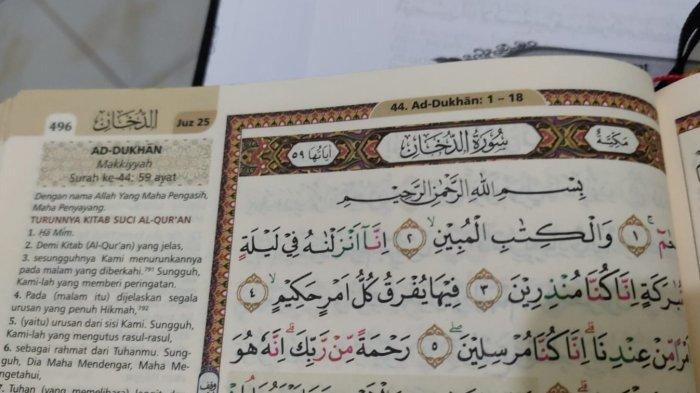 44. Ad-Dukhān: 1 – 18
496
الدخان
Juz 25
AD-DUKHĀN
Makkiyyah
Surah ke-44: 59 ayat
Dengan nama Allah Yang Maha Pengasih,
Maha Penyayang.
TURUNNYA KITAB SUCI AL-QUR'AN
1. Hā Mīm.
2. Demi Kitab (Al-Qur'an) yang jelas,
3. sesungguhnya Kami menurunkannya
pada malam yang diberkahi.⁷⁹¹ Sungguh,
Kami-lah yang memberi peringatan.
4. Pada (malam itu) dijelaskan segala
urusan yang penuh hikmah,⁷⁹²
5. (yaitu) urusan dari sisi Kami. Sungguh,
Kami-lah yang mengutus rasul-rasul,
6. sebagai rahmat dari Tuhanmu. Sung-
guh, Dia Maha Mendengar, Maha Me-
ngetahui,
7. Tuhan (yang memelihara)
مَكِّيَّةٌ سُورَةُ الدُّخَانِ اٰيَاتُهَا ٥٩
بِسْمِ اللّٰهِ الرَّحْمٰنِ الرَّحِيْمِ
١ وَالْكِتٰبِ الْمُبِيْنِ ٢ اِنَّآ اَنْزَلْنٰهُ فِيْ لَيْلَةٍ
اِنَّا كُنَّا مُنْذِرِيْنَ ٣ فِيْهَا يُفْرَقُ كُلُّ اَمْرٍ حَكِيْمٍ ٤
مِّنْ عِنْدِنَا اِنَّا كُنَّا مُرْسِلِيْنَ ٥ رَحْمَةً مِّنْ رَّبِّكَ اِنَّهٗ هُوَ